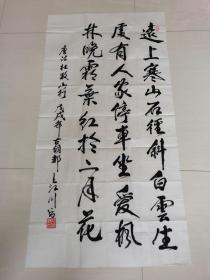 遠上寒山石徑斜白雲生
處有人家停車坐愛楓
林晚霜葉紅於二月花
唐詩杜牧山行 戊戌年
江川書